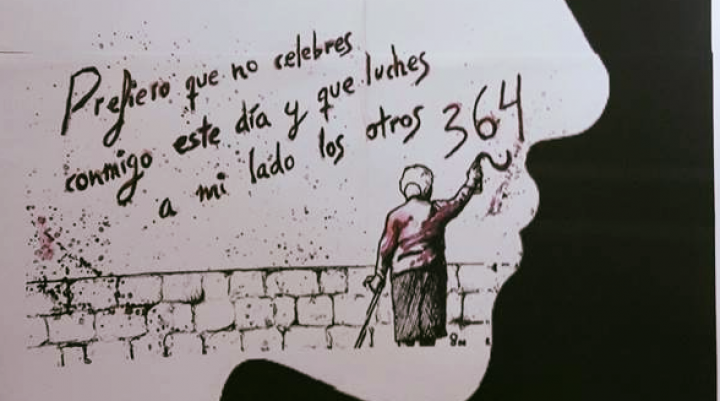 Prefiero que no celebres
conmigo este día y que luches
a mi lado los otros 364
8M